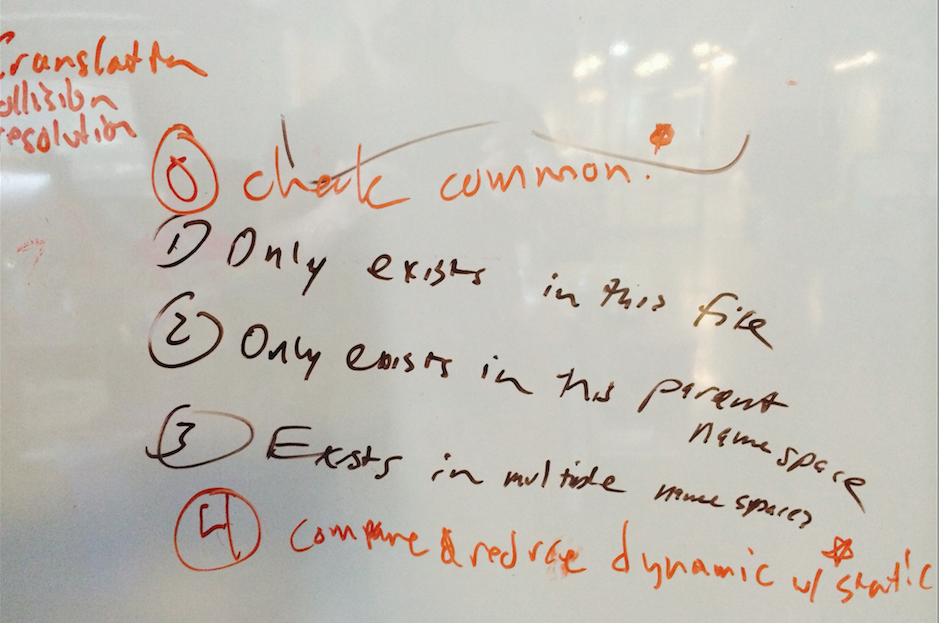 Translation
ollision
resolution
0 check common. *
1) Only exists in this file
2 Only exists in this parent
namespace
3 Exists in multiple namespaces
4 compare & reduce dynamic w/ static *